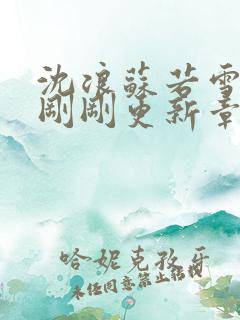 沈浪蘇若雪
剛剛更新章
哈妮克孜牙
未任同意禁止転載